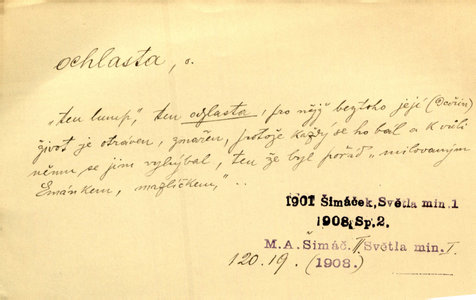 ochlasta, o.
„ten lump“, ten ochlasta, pro nějž beztoho její (Dorin)
život je otráven, zmařen, protože každý se ho bál a k vůli
němu se jim vyhýbal, ten že byl pořád „milovaným
Emánkem, mazlíčkem“..
1901 Šimáček, Světla min. 1
1908, Sp. 2.
M. A. Šimáč. II Světla min. I.
120.19. (1908.)